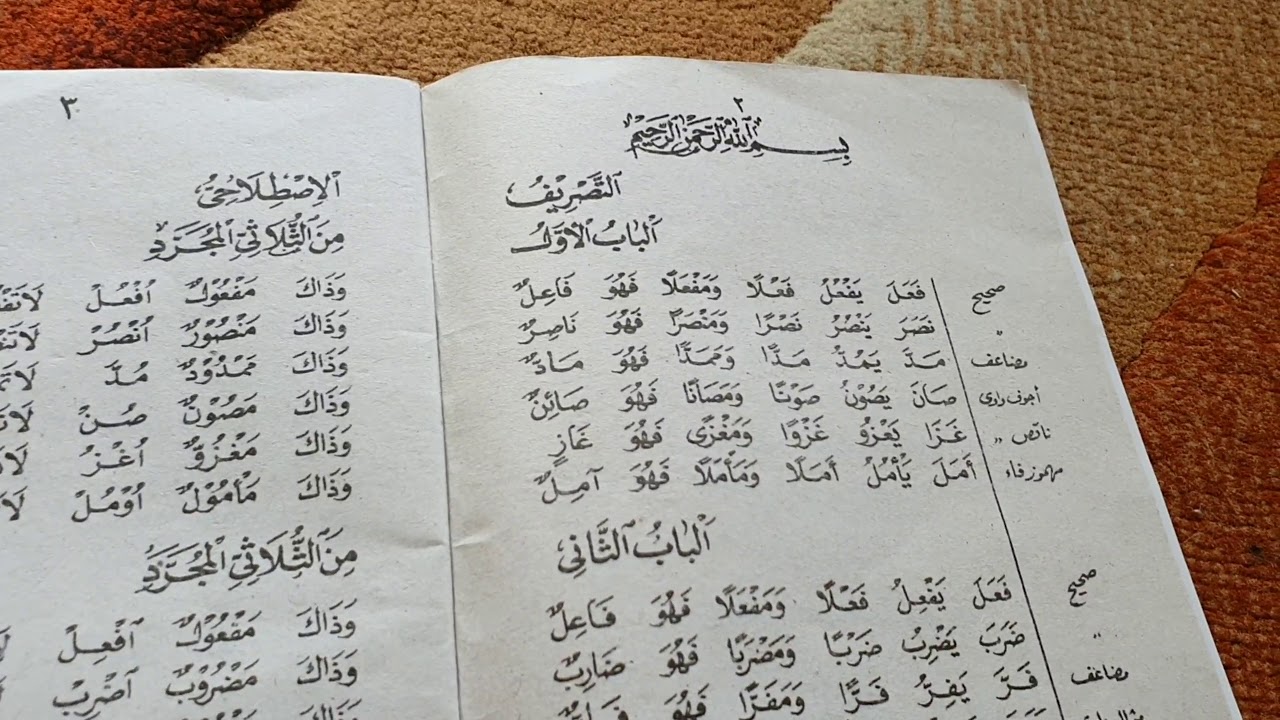 ٢
بِسْمِ اللّٰهِ الرَّحْمٰنِ الرَّحِيْمِ
اَلتَّصْرِيْفُ
اَلْبَابُ الْاَوَّلُ
صحيح فَعَلَ يَفْعُلُ فَعْلًا وَمَفْعَلًا فَهُوَ فَاعِلٌ
" نَصَرَ يَنْصُرُ نَصْرًا وَمَنْصَرًا فَهُوَ نَاصِرٌ
مضاعف مَدَّ يَمُدُّ مَدًّا وَمَمَدًّا فَهُوَ مَادٌّ
أجوف واوى صَانَ يَصُوْنُ صَوْنًا وَمَصَانًا فَهُوَ صَائِنٌ
ناقص " غَزَا يَغْزُو غَزْوًا وَمَغْزًى فَهُوَ غَازٍ
مهموز فاء أَمَلَ يَأْمُلُ أَمَلًا وَمَأْمَلًا فَهُوَ آمِلٌ
اَلْبَابُ الثَّانِى
صحيح فَعَلَ يَفْعِلُ فَعْلًا وَمَفْعَلًا فَهُوَ فَاعِلٌ
" ضَرَبَ يَضْرِبُ ضَرْبًا وَمَضْرَبًا فَهُوَ ضَارِبٌ
مضاعف فَرَّ يَفِرُّ فَرًّا وَمَفَرًّا فَهُوَ فَارٌّ
٣
اَلْاِصْطِلَاحِىُّ
مِنَ الثُّلَاثِيِّ الْمُجَرَّدِ
وَذَاكَ مَفْعُوْلٌ اُفْعُلْ
وَذَاكَ مَنْصُوْرٌ اُنْصُرْ
وَذَاكَ مَمْدُوْدٌ مُدَّ
وَذَاكَ مَصُوْنٌ صُنْ
وَذَاكَ مَغْزُوٌّ اُغْزُ
وَذَاكَ مَأْمُوْلٌ اُوْمُلْ
مِنَ الثُّلَاثِيِّ الْمُجَرَّدِ
وَذَاكَ مَفْعُوْلٌ اِفْعِلْ
وَذَاكَ مَضْرُوْبٌ اِضْرِبْ